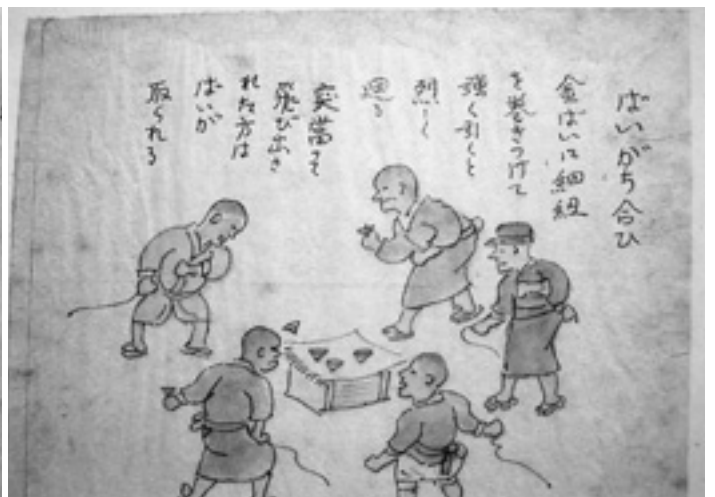 ばいがち合ひ
金ばいに細紐
を巻きつけて
強く引くと
烈しく
廻る
突当って
飛び出さ
れた方は
ばいが
取られる